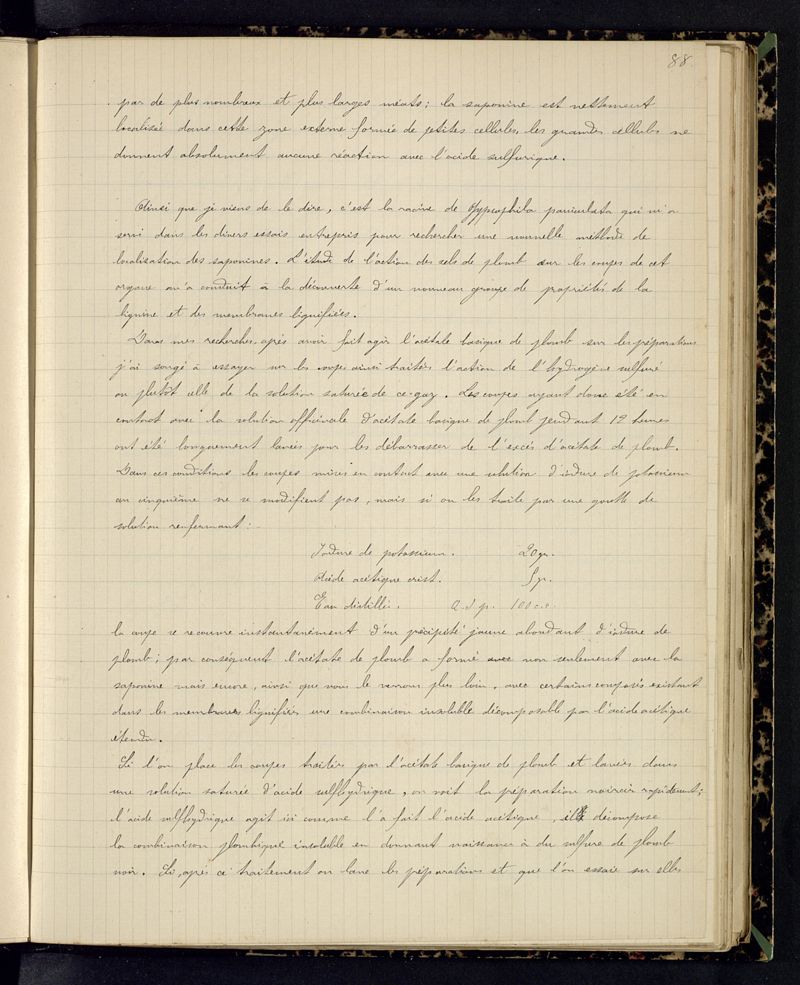 88
par de plus nombreux et plus larges méats; la saponine est nettement
localisée dans cette zone externe formée de petites cellules, les grandes cellules ne
donnent absolument aucune réaction avec l'acide sulfurique.
Ainsi que je viens de le dire, c'est la racine de Gypsophila paniculata qui m'a
servi dans les divers essais entrepris pour rechercher une nouvelle méthode de
localisation des saponines. L'étude de l'action des sels de plomb sur les coupes de cet
organe m'a conduit à la découverte d'un nouveau groupe de propriétés de la
lignine et des membranes lignifiées.
Dans mes recherches, après avoir fait agir l'acétate basique de plomb sur les préparations
j'ai songé à essayer sur les coupes ainsi traitées l'action de l'hydrogène sulfuré
ou plutôt celle de la solution saturée de ce gaz. Les coupes ayant donc été en
contact avec la solution officinale d'acétate basique de plomb pendant 12 heures
ont été longuement lavées pour les débarrasser de l'excès d'acétate de plomb.
Dans ces conditions les coupes mises en contact avec une solution d'iodure de potassium
au cinquième ne se modifient pas, mais si on les traite par une goutte de
solution renfermant:
Iodure de potassium. 20 gr.
Acide acétique crist. 5 gr.
Eau distillée. q.s.p. 100 c.c.
la coupe se recouvre instantanément d'un précipité jaune abondant d'iodure de
plomb; par conséquent l'acétate de plomb a formé avec non seulement avec la
saponine mais encore, ainsi que nous le verrons plus loin, avec certains composés existant
dans les membranes lignifiées une combinaison insoluble décomposable par l'acide acétique
étendu.
Si l'on place les coupes traitées par l'acétate basique de plomb et lavées dans
une solution saturée d'acide sulfhydrique, on voit la préparation noircir rapidement;
l'acide sulfhydrique agit ici comme l'a fait l'acide acétique, il décompose
la combinaison plombique insoluble en donnant naissance à du sulfure de plomb
noir. Si, après ce traitement on lave les préparations et que l'on essaie sur elles